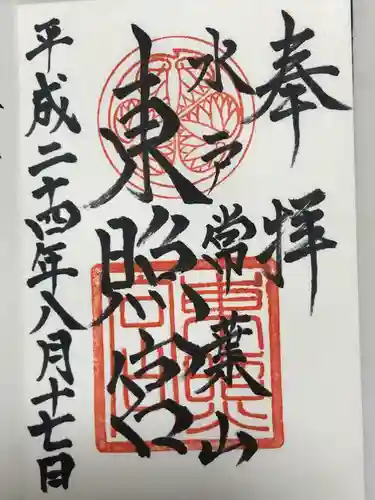 奉拝
水戸
常葉山
東照宮
平成二十四年八月十七日